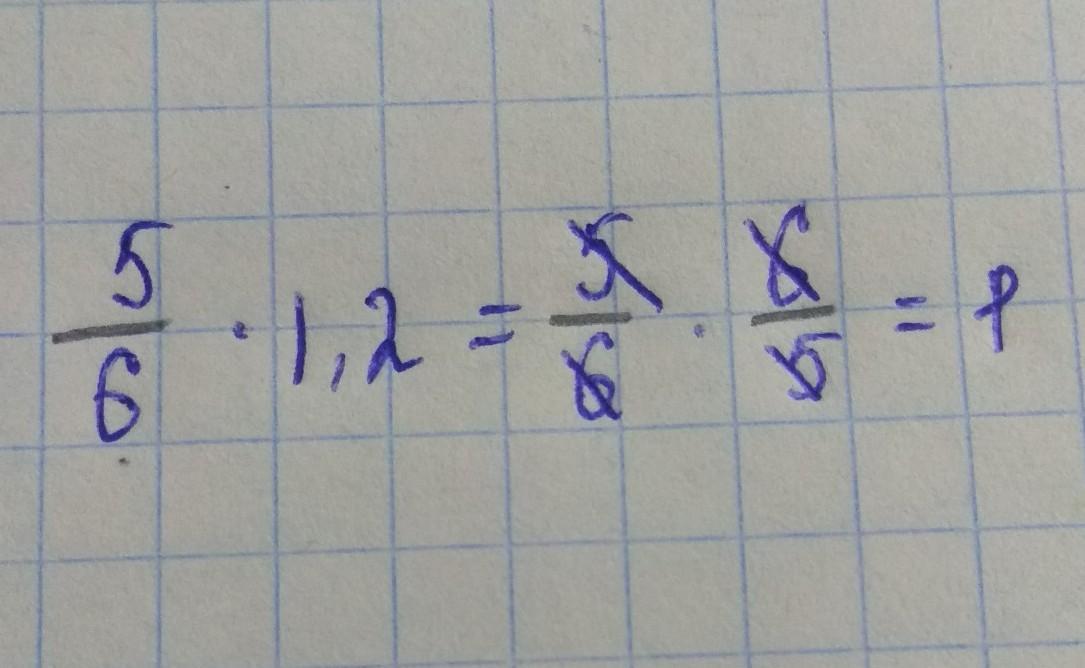 5/6 · 1,2 = 5/6 · 6/5 = 1